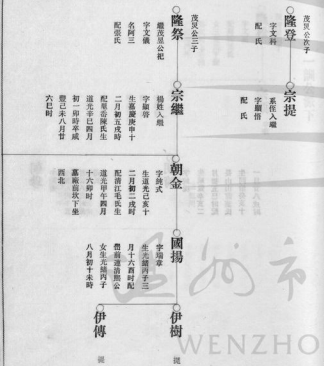 茂炅公次子
隆登
字文科
配 氏
宗提
系侄入繼
字顯悟
配 氏
茂炅公三子
隆祭
繼茂炅公祀
字文儀
名阿三
配張氏
宗繼
楊姓入繼
字顯啓
生嘉慶庚申十
二月初五戌時
配 岙陳氏生
道光辛巳四月
初一卯時卒咸
豐己未八月廿
六巳时
朝金
字純式
生道光己亥十
二月初二戌时
配清江毛氏生
道光甲午四月
十六卯时
墓厰前坎下坐
西北
國揚
字瑞章
生光緒丙子三
月十六酉时配
前連浩熙公
女生光緒丙子
八月初十未時
伊樹
伊傳
温州市
WENZHO